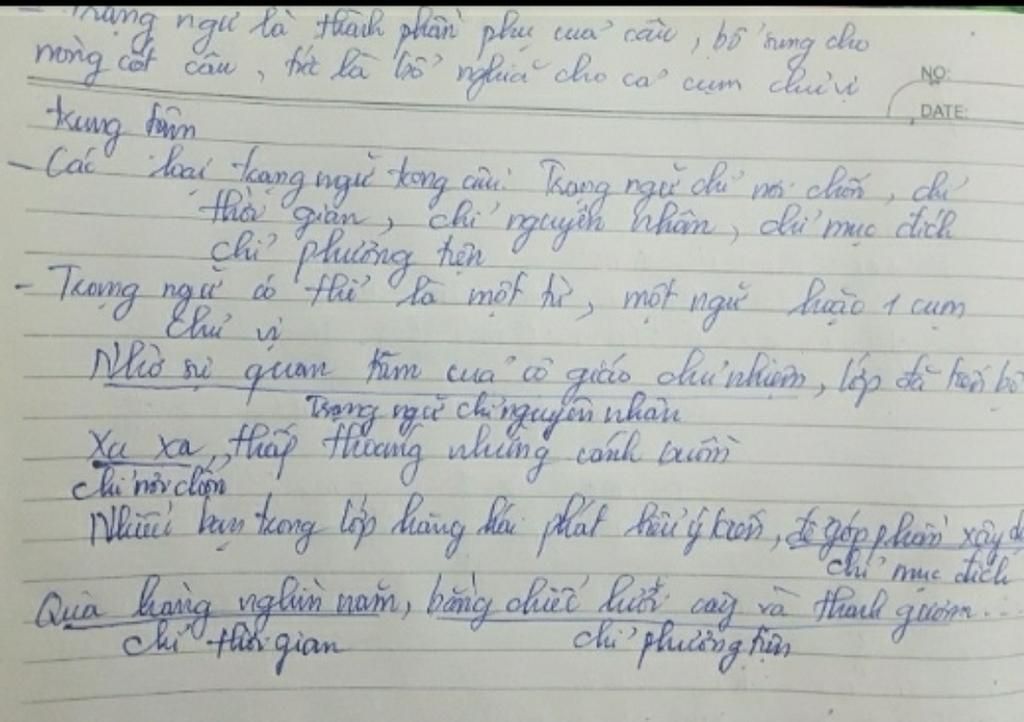 - Trạng ngữ là thành phần phụ của câu, bổ sung cho
nòng cốt câu, tức là bổ nghĩa cho cả cụm chủ vị
NO:
DATE:
trung tâm
- Các loại trạng ngữ trong câu: Trạng ngữ chỉ nơi chốn, chỉ
thời gian, chỉ nguyên nhân, chỉ mục đích
chỉ phương tiện
- Trạng ngữ có thể là một từ, một ngữ hoặc 1 cụm
chủ vị
Nhờ sự quan tâm của cô giáo chủ nhiệm, lớp đã tiến bộ
Trạng ngữ chỉ nguyên nhân
Xa xa, thấp thoáng những cánh buồm
chỉ nơi chốn
Nhiều bạn trong lớp hăng hái phát biểu ý kiến, để góp phần xây d
chỉ mục đích
Qua hàng nghìn năm, bằng chiếc lưỡi cày và thanh gươm...
chỉ thời gian chỉ phương tiện